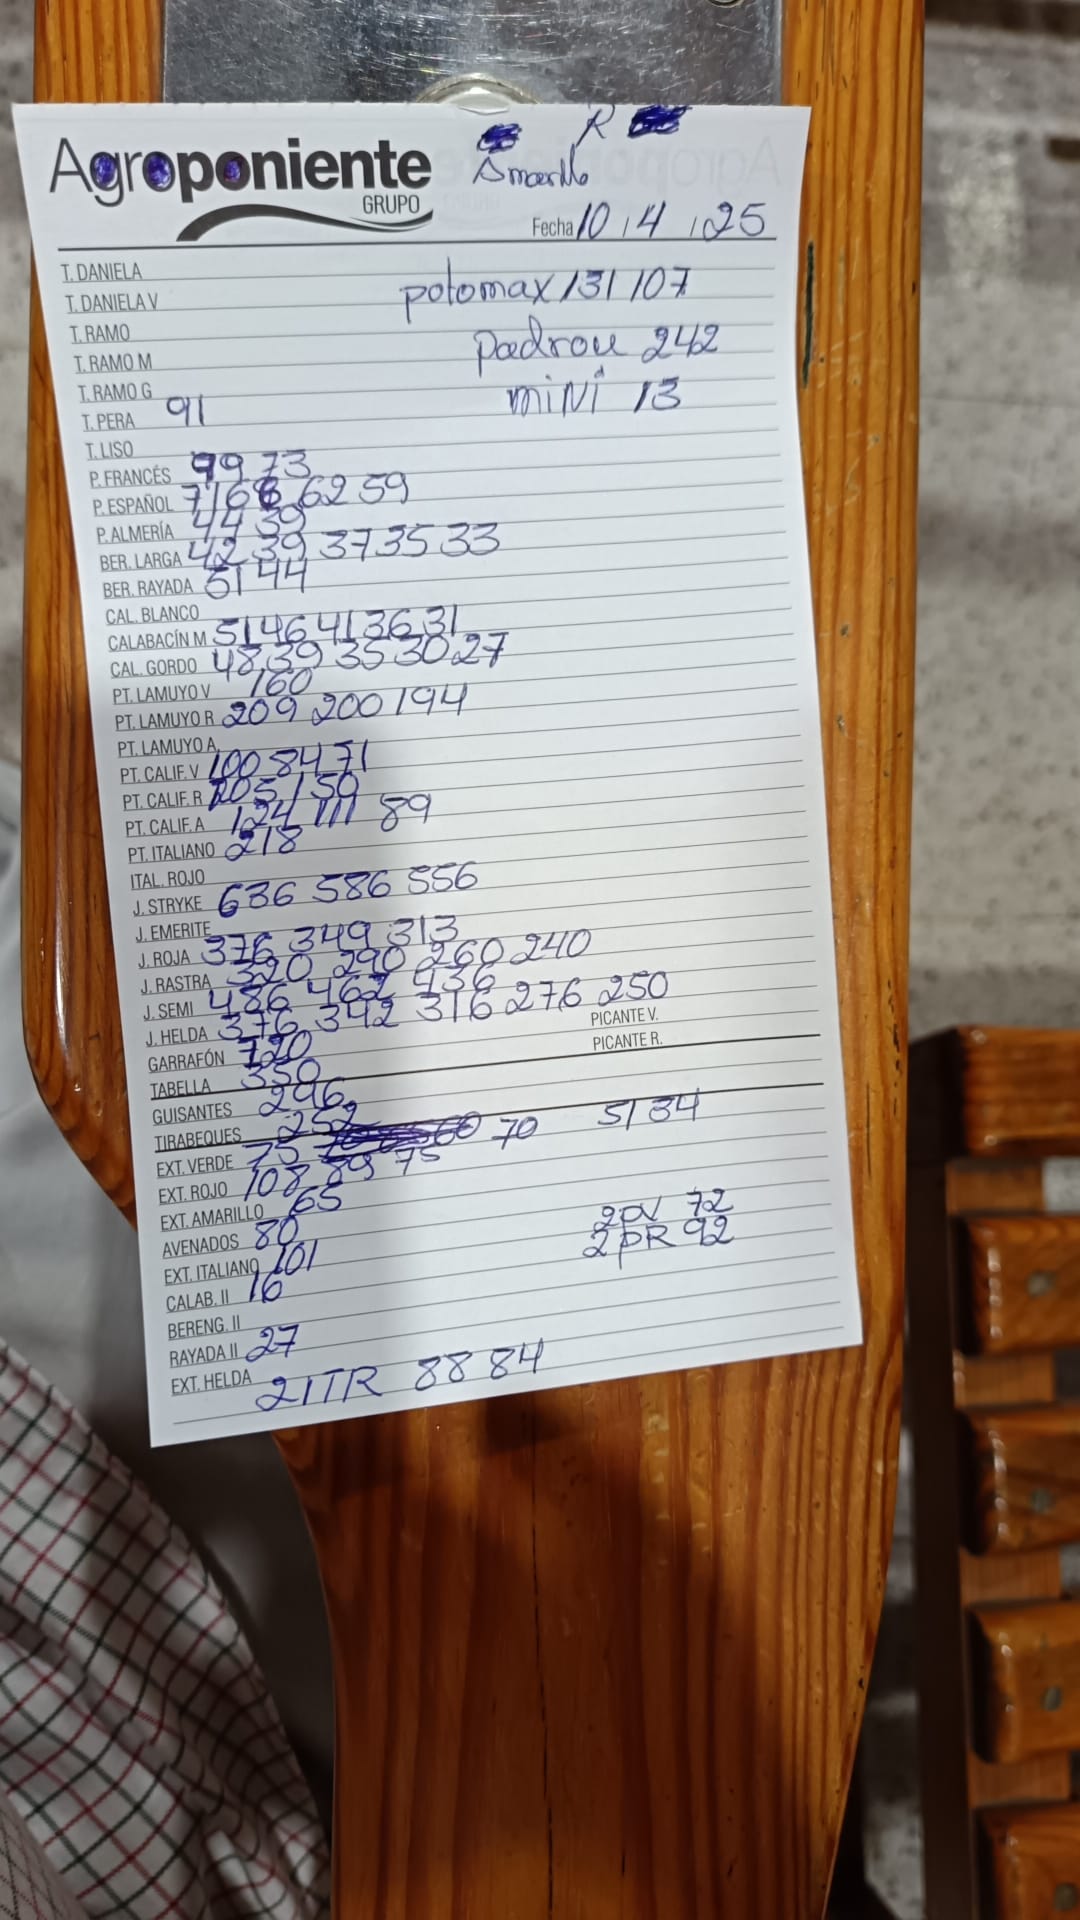 R
Agroponiente
Amarillo
GRUPO
Fecha 10 / 4 / 25
T. DANIELA
T. DANIELA V potomax 131 107
T. RAMO
T. RAMO M padron 242
T. RAMO G mini 13
T. PERA 91
T. LISO
P. FRANCÉS 99 73
P. ESPAÑOL 71 66 62 59
P. ALMERÍA 44 39
BER. LARGA 42 39 37 35 33
BER. RAYADA 51 44
CAL. BLANCO
CALABACÍN M 51 46 41 36 31
CAL. GORDO 48 39 35 30 27
PT. LAMUYO V 160
PT. LAMUYO R 209 200 194
PT. LAMUYO A
PT. CALIF. V 100 84 71
PT. CALIF. R 205 150
PT. CALIF. A 124 111 89
PT. ITALIANO 218
ITAL. ROJO
J. STRYKE 636 586 556
J. EMERITE
J. ROJA 376 349 313
J. RASTRA 320 290 260 240
J. SEMI 486 462 436
J. HELDA 376 342 316 276 250
PICANTE V.
GARRAFÓN 720
PICANTE R.
TABELLA 350
GUISANTES 296
TIRABEQUES 252
EXT. VERDE 75 60 70 51 34
EXT. ROJO 108 89 75
EXT. AMARILLO 65
AVENADOS 80 2PV 72
EXT. ITALIANO 101 2PR 92
CALAB. II 16
BERENG. II
RAYADA II 27
EXT. HELDA 2ITR 88 84